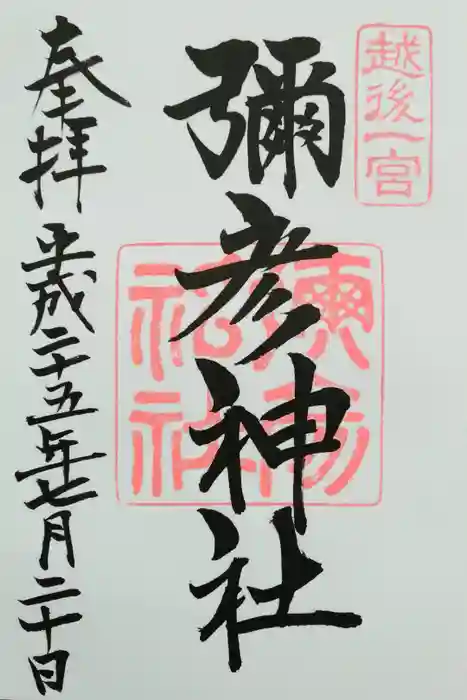 越後一宮
彌彦神社
奉拝
平成二十五年七月二十日